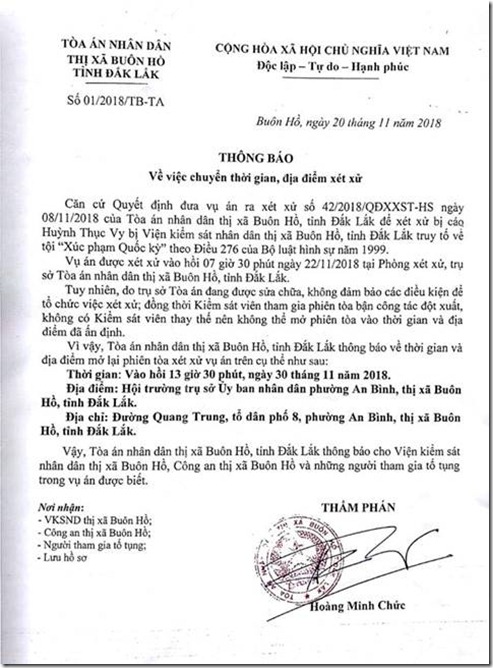 TÒA ÁN NHÂN DÂN
THỊ XÃ BUÔN HỒ
TỈNH ĐẮK LẮK
Số 01/2018/TB-TA
CỘNG HÒA XÃ HỘI CHỦ NGHĨA VIỆT NAM
Độc lập – Tự do – Hạnh phúc
Buôn Hồ, ngày 20 tháng 11 năm 2018
THÔNG BÁO
Về việc chuyển thời gian, địa điểm xét xử
Căn cứ Quyết định đưa vụ án ra xét xử số 42/2018/QĐXXST-HS ngày
08/11/2018 của Tòa án nhân dân thị xã Buôn Hồ, tỉnh Đắk Lắk để xét xử bị cáo
Huỳnh Thục Vy bị Viện kiểm sát nhân dân thị xã Buôn Hồ, tỉnh Đắk Lắk truy tố về
tội “Xúc phạm Quốc kỳ” theo Điều 276 của Bộ luật hình sự năm 1999.
Vụ án được xét xử vào hồi 07 giờ 30 phút ngày 22/11/2018 tại Phòng xét xử, trụ
sở Tòa án nhân dân thị xã Buôn Hồ, tỉnh Đắk Lắk.
Tuy nhiên, do trụ sở Tòa án đang được sửa chữa, không đảm bảo các điều kiện để
tổ chức việc xét xử; đồng thời Kiểm sát viên tham gia phiên tòa bận công tác đột xuất,
không có Kiểm sát viên thay thế nên không thể mở phiên tòa vào thời gian và địa
điểm đã ấn định.
Vì vậy, Tòa án nhân dân thị xã Buôn Hồ, tỉnh Đắk Lắk thông báo về thời gian và
địa điểm mở lại phiên tòa xét xử vụ án trên cụ thể như sau:
Thời gian: Vào hồi 13 giờ 30 phút, ngày 30 tháng 11 năm 2018.
Địa điểm: Hội trường trụ sở Ủy ban nhân dân phường An Bình, thị xã Buôn
Hồ, tỉnh Đắk Lắk.
Địa chỉ: Đường Quang Trung, tổ dân phố 8, phường An Bình, thị xã Buôn
Hồ, tỉnh Đắk Lắk.
Vậy, Tòa án nhân dân thị xã Buôn Hồ, tỉnh Đắk Lắk thông báo cho Viện kiểm sát
nhân dân thị xã Buôn Hồ, Công an thị xã Buôn Hồ và những người tham gia tố tụng
trong vụ án được biết.
Nơi nhận:
- VKSND thị xã Buôn Hồ;
- Công an thị xã Buôn Hồ;
- Người tham gia tố tụng;
- Lưu hồ sơ
THẨM PHÁN
Hoàng Minh Chức